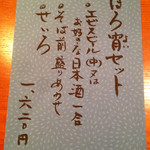 ほろ宵セット
・エビスビール(中)又は
お好きな日本酒一合
・そば前盛りあわせ
・せいろ
一、六二〇円